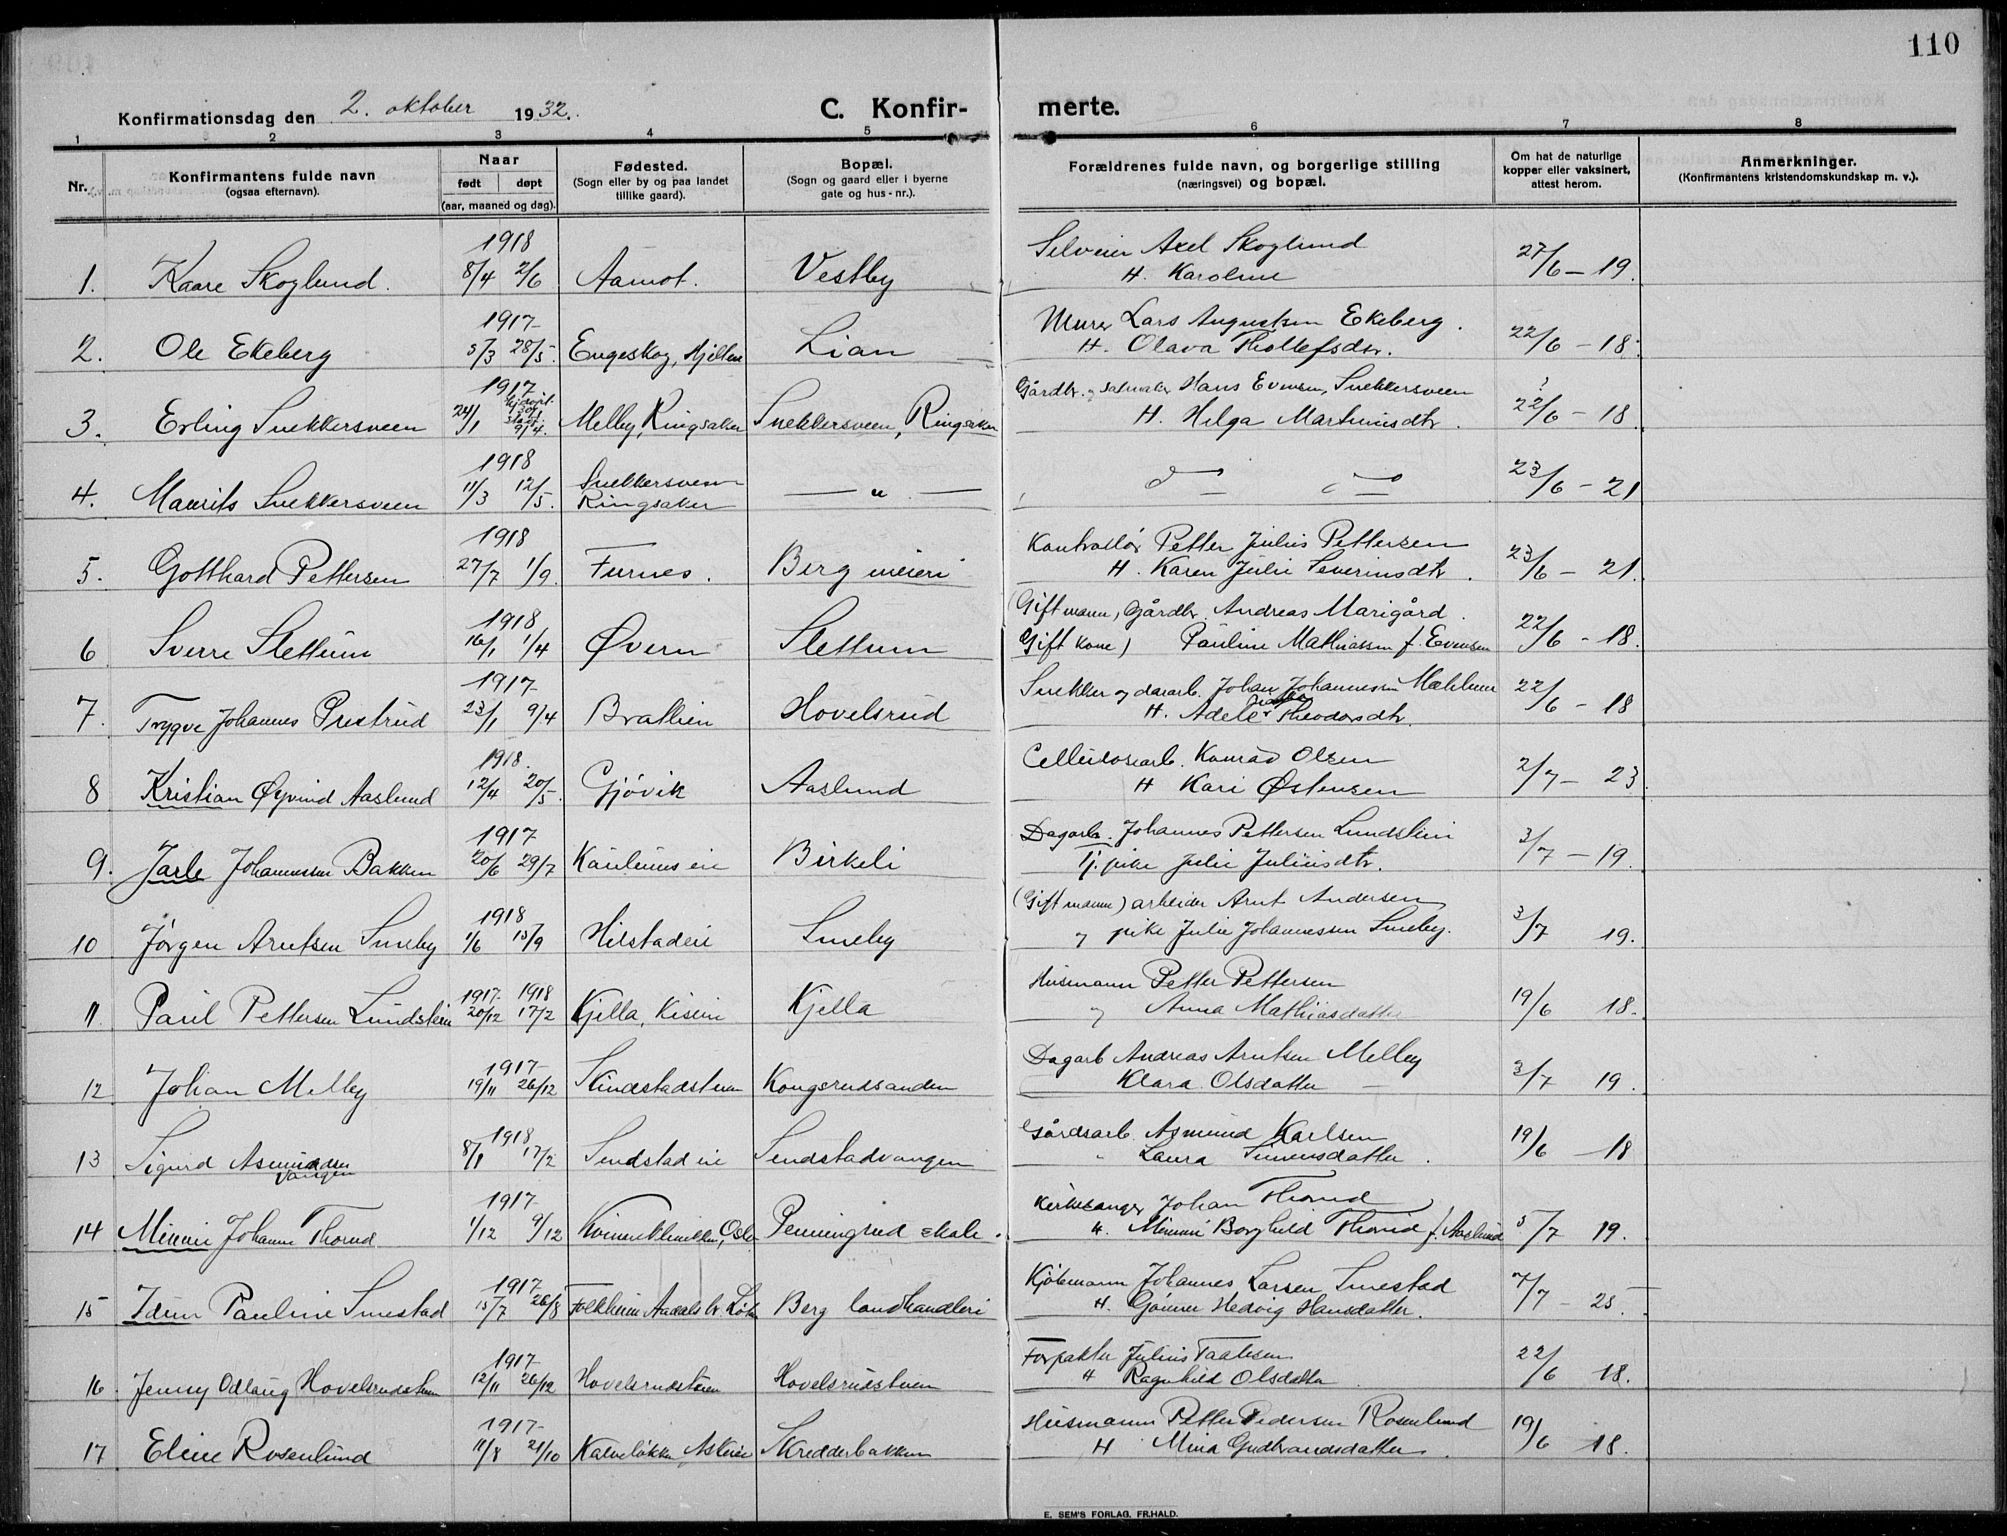 110
Konfirmationsdag den 2. oktober 1932.
C. Konfir-
merte.
1 2 3 4 5 6 7 8
Nr.
Konfirmantens fulde navn
(ogsaa efternavn).
Naar
født døpt
(aar, maaned og dag).
Fødested.
(Sogn eller by og paa landet
tillike gaard).
Bopæl.
(Sogn og gaard eller i byerne
gate og hus-nr.).
Forældrenes fulde navn, og borgerlige stilling
(næringsvei) og bopæl.
Om hat de naturlige
kopper eller vaksinert,
attest herom.
Anmerkninger.
(Konfirmantens kristendomskundskap m. v.).
1918
Selveier Axel Skoglund
1. Kaare Skoglund. 8/4 2/6 Aamot. Vestby H. Karoline 27/6 – 19.
1917
Murer Lars Augustsen Ekeberg.
2. Ole Ekeberg 5/3 28/5. Engeskog, Lian H. Olava Thollefsdtr. 22/6 – 18.
1917
Gårdbr. og Hans Evensen, Snekkersveen
3. Erling Snekkersveen 24/1 9/4. Melby, Ringsaker Snekkersveen, Ringsaker H. Helga Martinusdtr. 22/6 – 18.
1918
Snekkersveen
4. Maurits Snekkersveen 11/3 12/5. Ringsaker — " — 23/6 – 21
1918
Kontrollør Petter Julius Pettersen
5. Gotthard Pettersen 27/7 1/9. Furnes. Berg meieri H. Karen Julie Severinsdtr. 23/6 – 21.
1918
(Gift mann, Gårdbr. Andreas Marigård.
6 Sverre Slettum 16/1 1/4 Øvern Slettum Gift kone) Pauline Mathiassen f. Evensen 22/6 – 18.
1917
Snekker og dararb. Johan Johannessen Mæhlum
7. Trygve Johannes Prestrud 23/1 9/4 Brattlien Hovelsrud H. Adele Theodorsdtr. 22/6 – 18
1918.
Cellulosearb. Konrad Olsen
8 Kristian Øyvind Aaslund 12/4 20/5. Gjøvik Aaslund H Kari Østensen 2/7 – 23
1917
Dagarb. Johannes Pettersen Lundstein
9. Jarle Johannessen Bakken 20/6 29/7 Birkeli Tj. pike Julie Juliusdtr. 3/7 – 19.
1918
(Gift mann) arbeider Arnt Andersen
10 Jørgen Arntsen Smeby 1/6 15/9 Hilstadeie Smeby og pike Julie Johannessen Smeby. 3/7 19.
1917 1918
Husmann Petter Pettersen
11 Paul Pettersen Lundstein 20/12 17/2 Kjella, Kisein Kjella og Anna Mathiasdatter 19/6 18.
1917
Dagarb Andreas Arntsen Melby
12 Johan Melby 19/11 26/12 Kongsrudsanden Klara Olsdatter 3/7 19.
1918
Gårdsarb. Asmund Karlsen
13 Sigurd Asmundsen 8/1 17/2 Sendstad eie Sendstadvangen " Laura Simensdatter. 19/6 18
Vangen
1917
Kirkesanger Johan Thorud
14 Minnie Johanne Thorud 1/12 9/12 Kvinneklinikken, Oslo Penningrud skole. H. Minnie Borghild Thorud f. Aaslund 5/7 19.
1917
Kjøbmann Johannes Larsen Smestad
15 Idun Pauline Smestad 15/7 26/8 Folkheim Berg landhandleri H. Gunner Hedvig Hansdatter. 7/7 – 25.
1917
Forpakter Julius Taalesen
16. Jenny Odlaug Hovelsrudstuen 12/11 26/12 Hovelsrudstuen Hovelsrudstuen H Ragnhild Olsdatter 22/6 18.
1917
Husmann Petter Pedersen Rosenlund
17 Eline Rosenlund 11/8 21/10 Kalveløkka, Skredderbakken H. Mina Gudbrandsdatter. 19/6 18.
E. SEM'S FORLAG, FR.HALD.